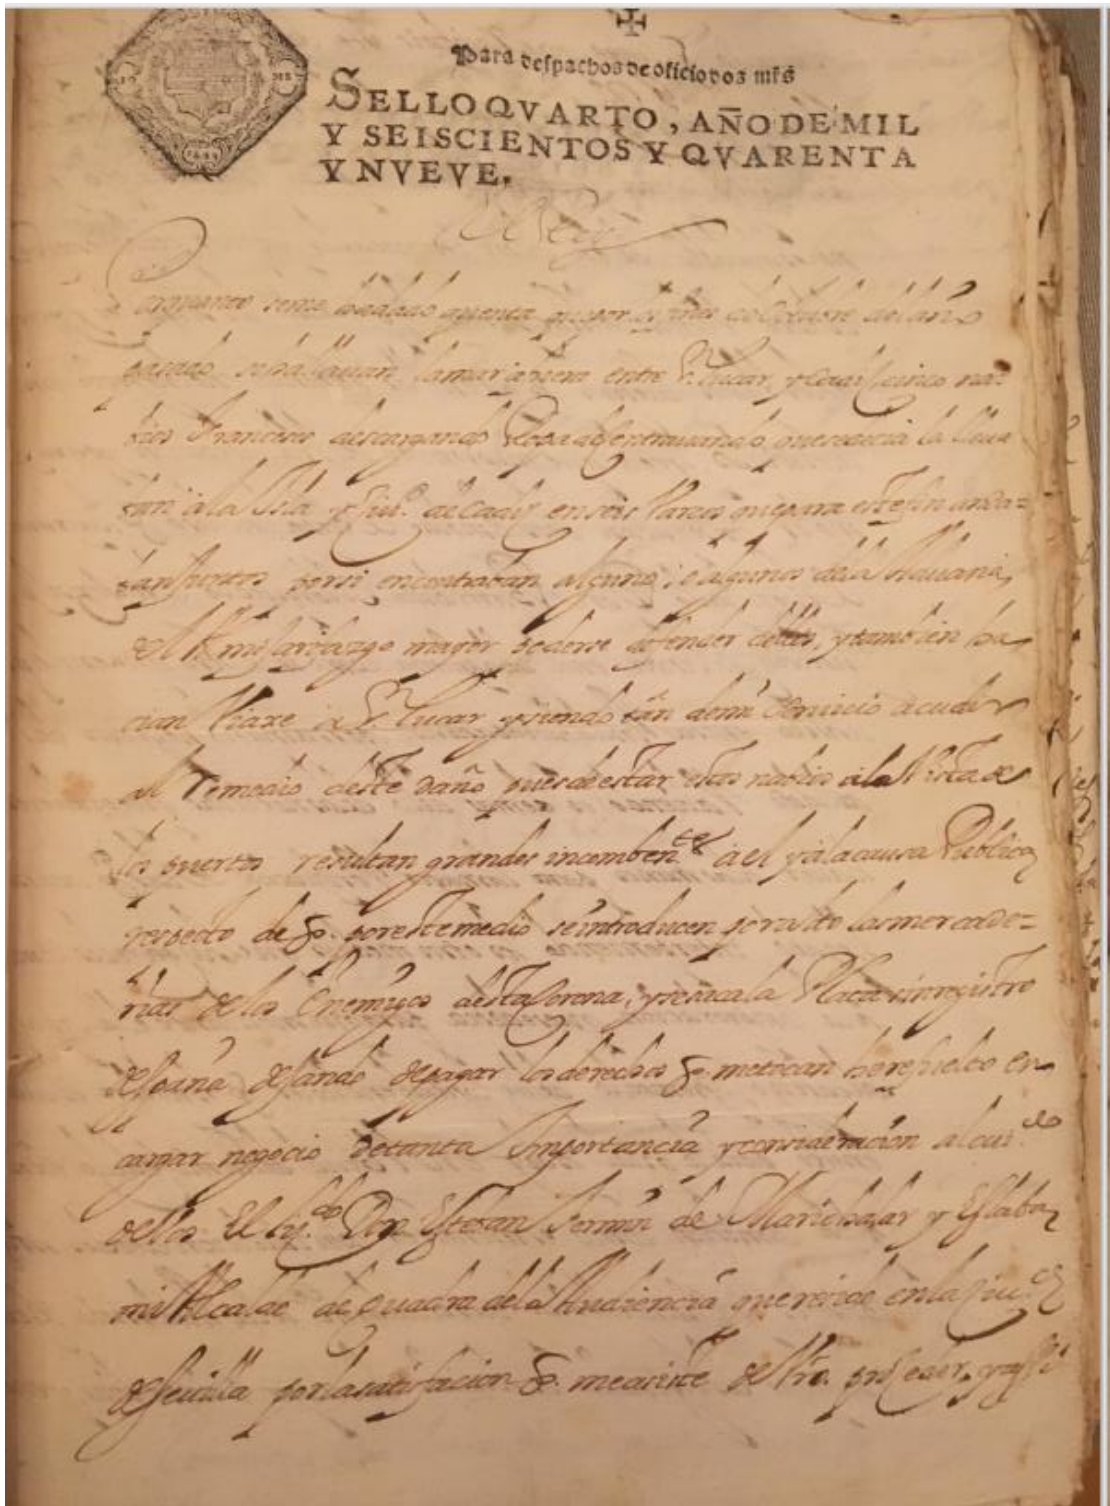 Para despachos de oficio dos mrs
SELLO QVARTO, AÑO DE MIL
Y SEISCIENTOS Y QVARENTA
Y NVEVE.
El Rey
Porquanto seme ha dado quenta que por fines de Octubre del año
pasado se hallauan la mar a fuera entre S. lucar y Cadiz cinco na=
bios franceses descargando Ropa de contrauando que se decia la lleua
ban a la Isla y Ciu.d de Cadiz en seis Varcos que para este fin anda=
ban juntos por si encontraban alguno, o algunos de la Aduana,
o del Almojarifazgo mayor poderse defender dellos, y tambien ha
cian Viaxe a S. lucar y siendo tan de mi seruicio acudir
al Remedio deste daño pues de estar estos nabios a la Vista de
los puertos resultan grandes incomben.tes a el y a la causa Publica
respecto de q. por este medio se introducen por alto las mercade=
rias de los Enemigos desta Corona, y se saca la Plata sin registro
de España dejando de pagar los derechos q. me tocan he resuelto en
cargar negocio de tanta Importancia y consideracion al cui.do
de vos El Liz.do Don Esteban fermin de Marichalar y Eslaba
mi Alcalde de quadra de la Audiencia que reside en la Ciu.d
de Seuilla por la satisfacion q. me asiste de Vro. proceder, y assi